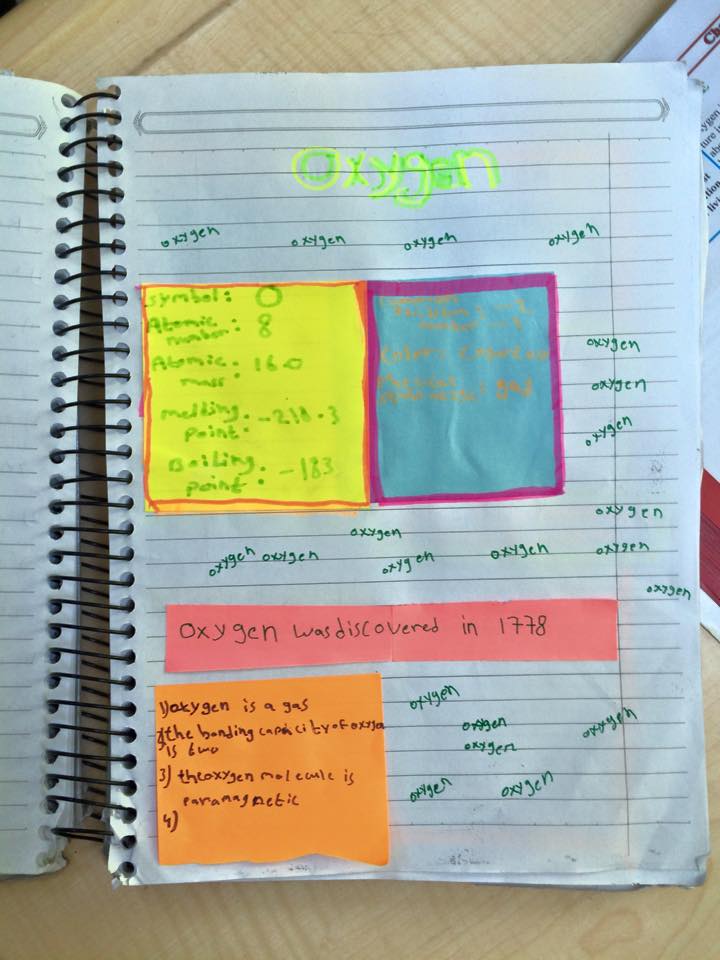 Oxygen
oxygen oxygen oxygen oxygen
symbol: O
Atomic
number: 8
Atomic
mass: 16.0
melting
point: -218.3
Boiling
point: -183
number
Color:
gas
oxygen
oxygen
oxygen
oxygen
oxygen
oxygen oxygen oxygen oxygen oxygen
oxygen
Oxygen was discovered in 1778
1) oxygen is a gas
2) the bonding capicity of oxygen
is two
3) the oxygen molecule is
paramagnetic
4)
oxygen
oxygen oxygen
oxygen
oxygen oxygen